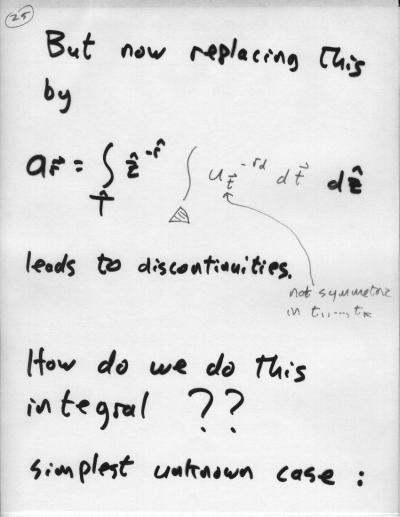 25
But now replacing this
by
a_{\vec{r}} = ∫_{\hat{T}} \hat{z}^{-\hat{r}} ∫_{△} u_{\vec{t}}^{-r_d} d\vec{t} d\hat{z}
leads to discontinuities.
not symmetric
in t_1, ..., t_k
How do we do this
integral ??
simplest unknown case :